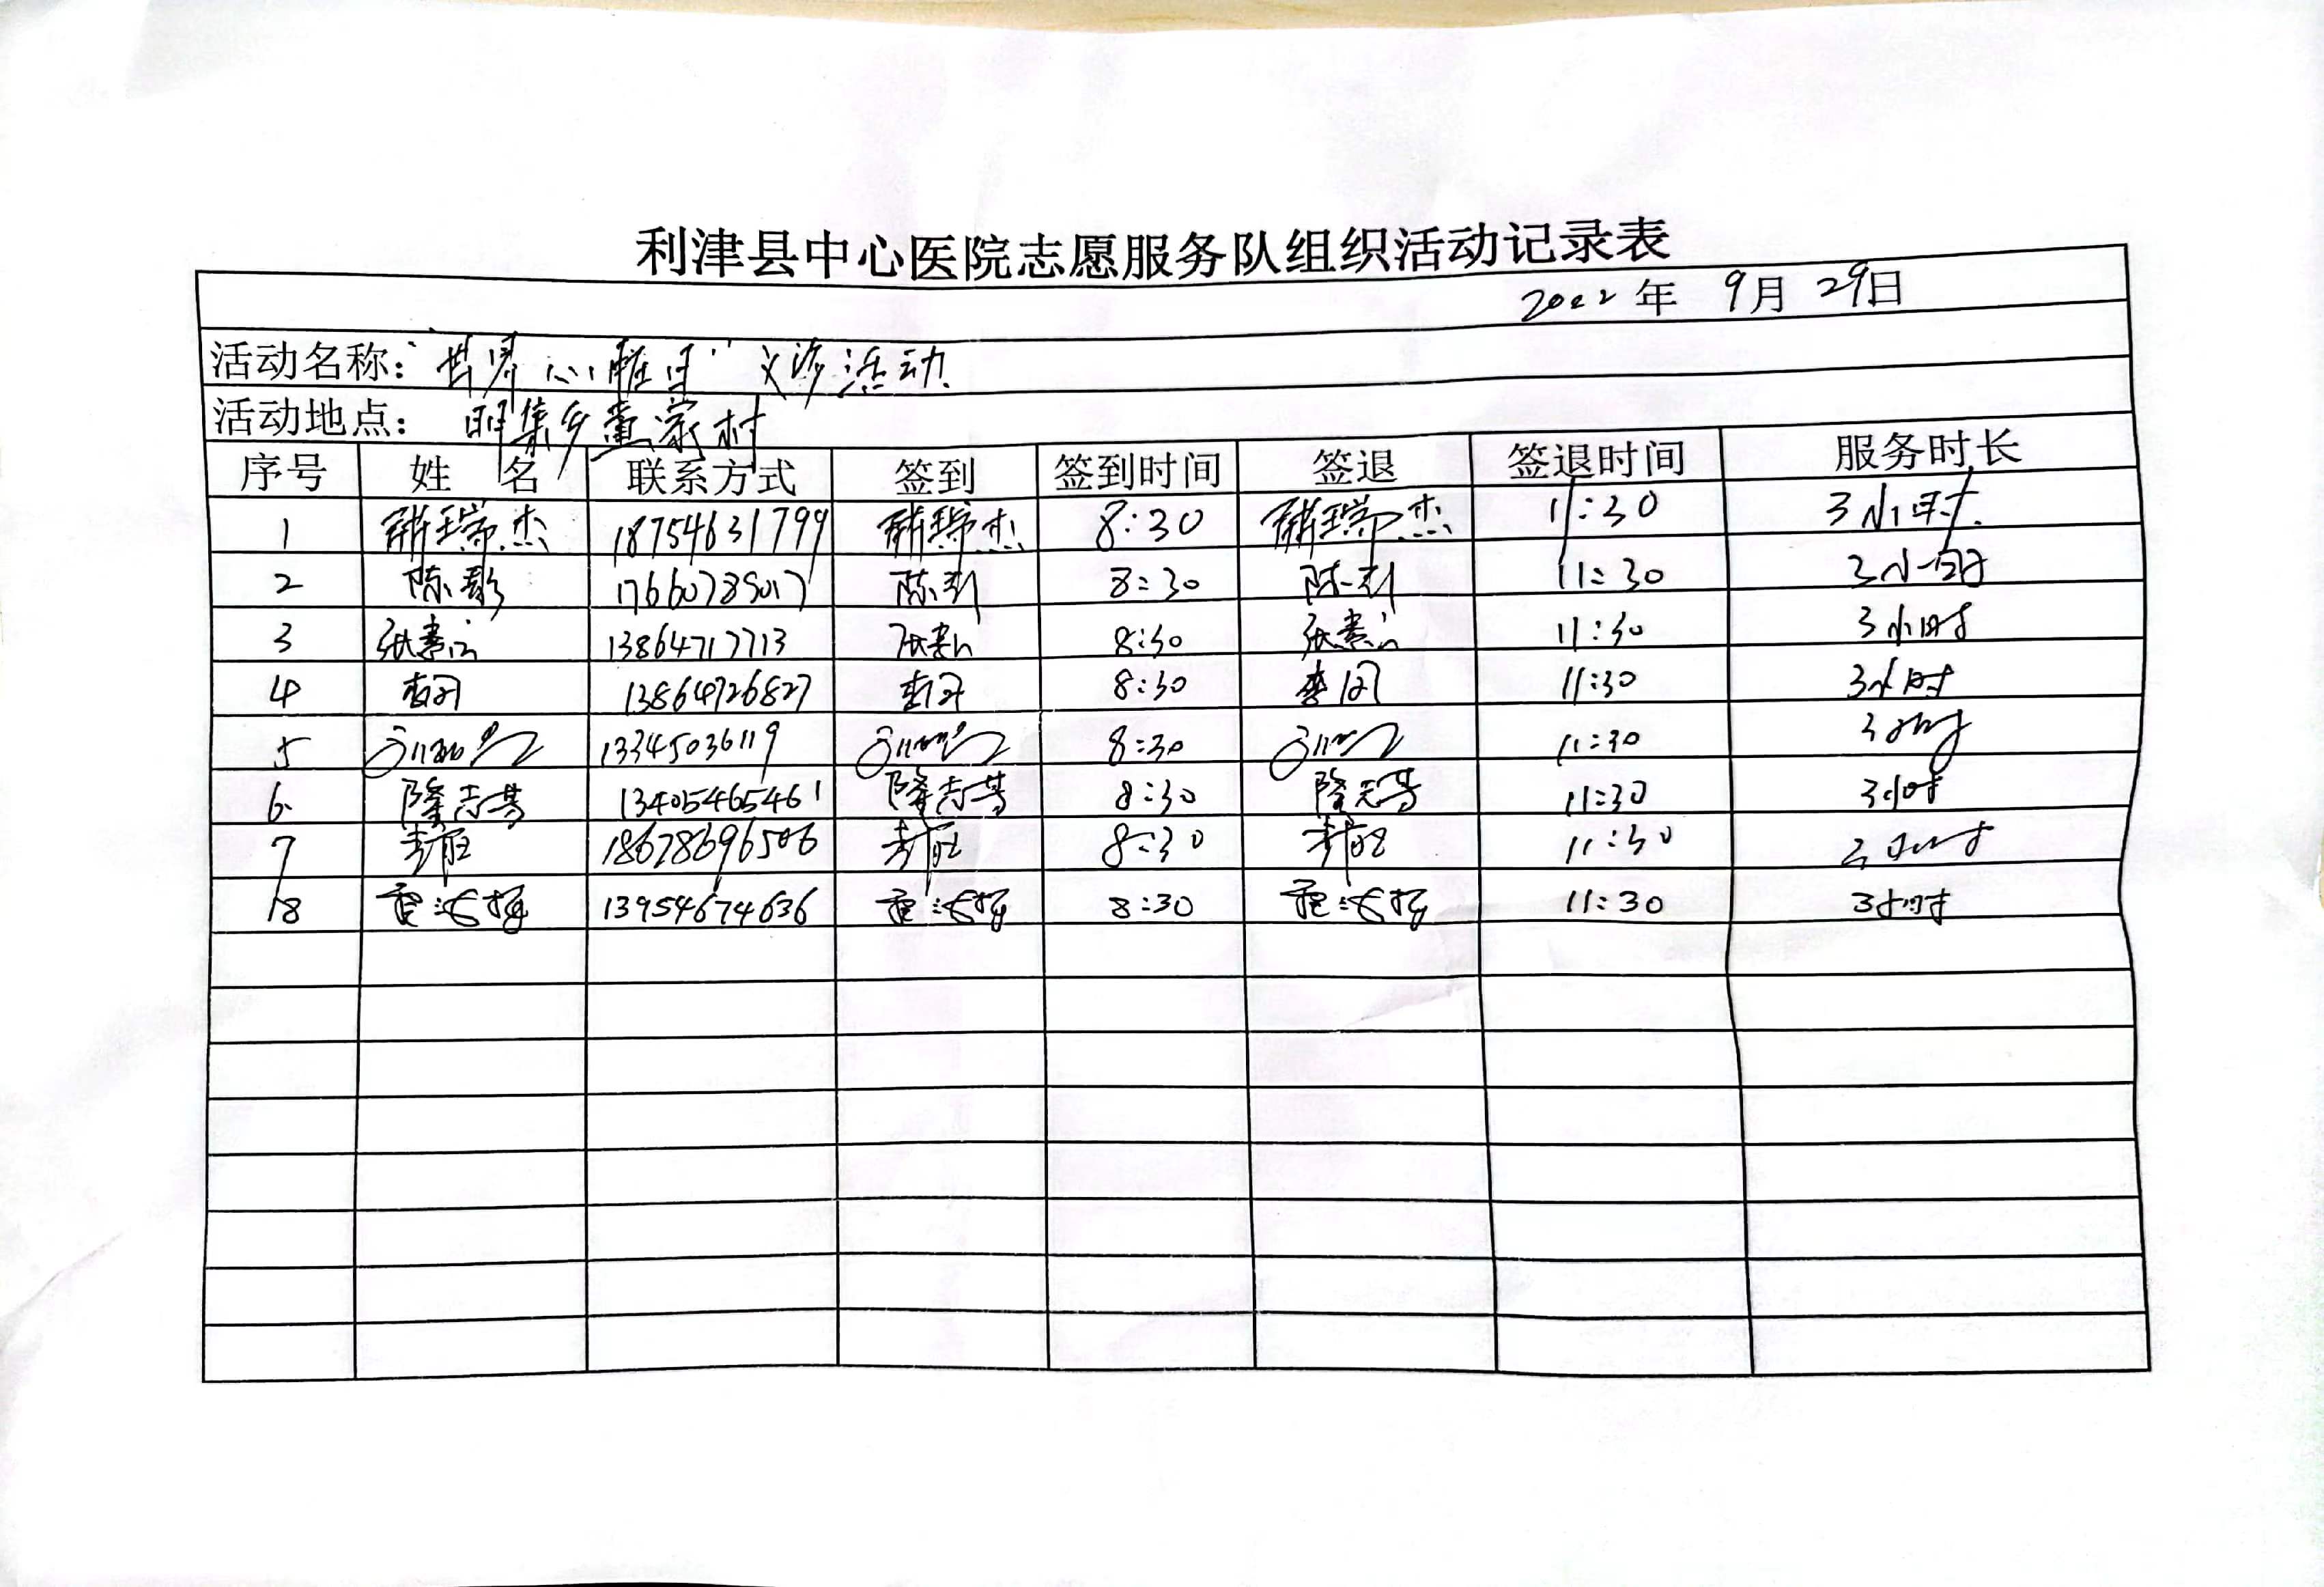 利津县中心医院志愿服务队组织活动记录表
2022年 9月 29日
活动名称："世界心脏日"义诊活动
活动地点：明集乡董家村
序号 姓名 联系方式 签到 签到时间 签退 签退时间 服务时长
1 瑞杰 18754631799 瑞杰 8:30 瑞杰 11:30 3小时
2 陈影 17660785017 陈影 8:30 陈影 11:30 3小时
3 张 13864717713 张 8:30 张 11:30 3小时
4 13864726827 8:30 11:30 3小时
5 13345036119 8:30 11:30 3小时
6 隆志芳 13405465461 隆志芳 8:30 隆志芳 11:30 3小时
7 18678696506 8:30 11:30 3小时
8 13954674636 8:30 11:30 3小时